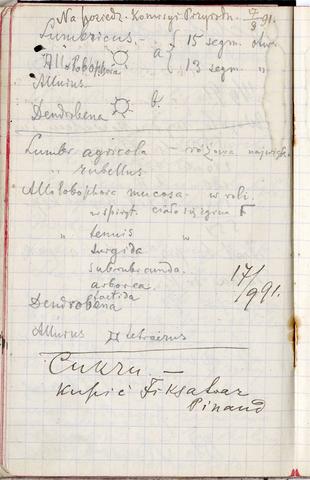 Na posiedz. Komisyi Przyrodn. 17/3 91.
Lumbricus. - a { 15 segm. otw.
Allolobophora { 13 segm. "
Allurus
Dendrobena b.
Lumbr agricola - różowa najwięk
" rubellus
Allolobophora mucosa - w roli.
w spiryt. ciało się zgina
" tenuis "
turgida
subrubicunda.
arborea
foetida
Dendrobena
17/ 991.
Allurus tetraedrus
Cukru —
Kupić Fiksatoar
Pinaud